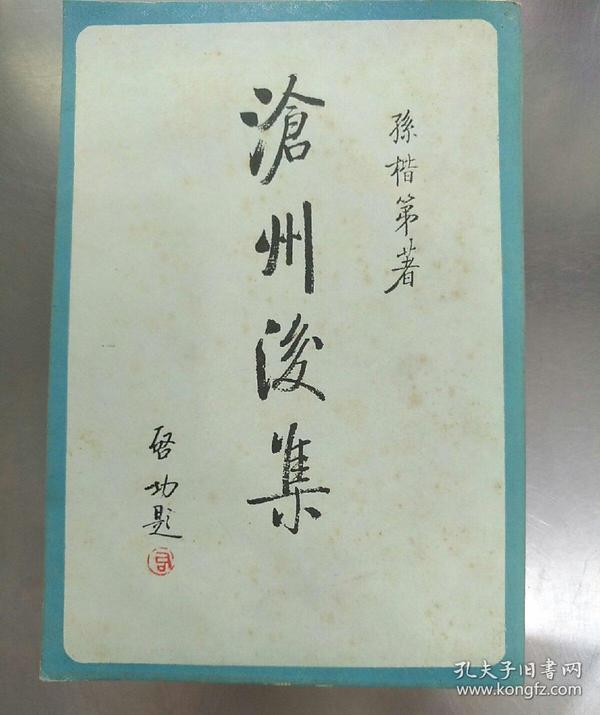 孫楷第著
滄州後集
啓功題
孔夫子旧書网
www.kongfz.com